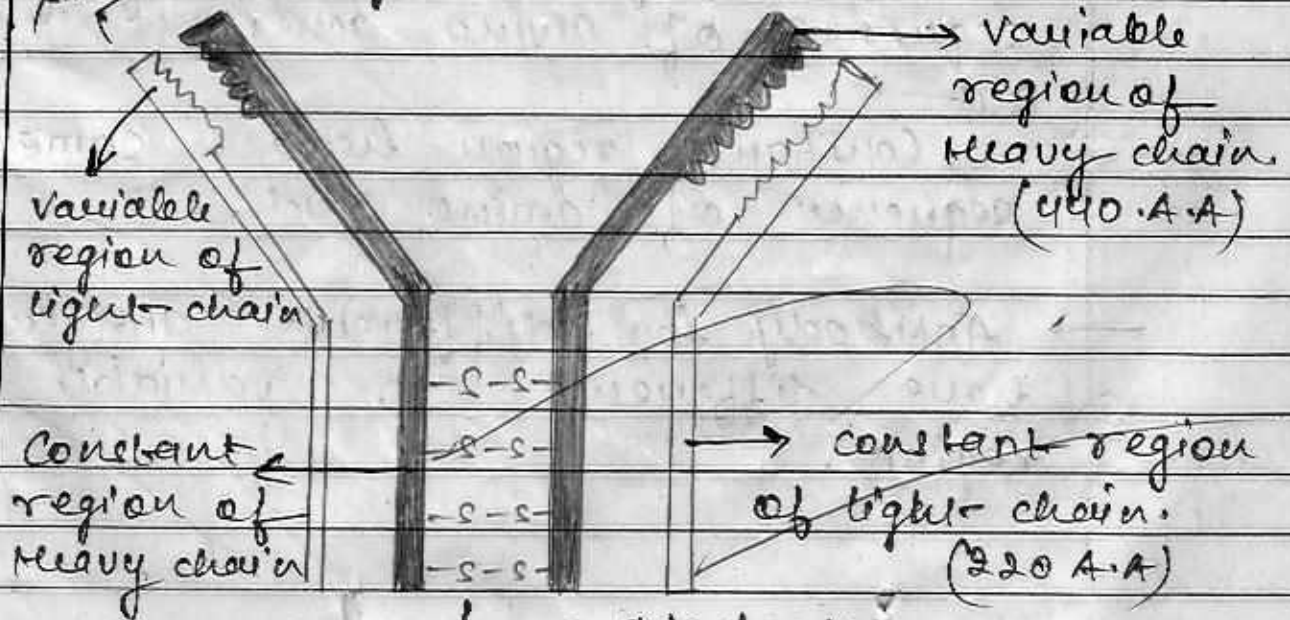 variable
region of
Heavy chain.
(440.A.A)
variable
region of
light chain
-S-S-
-S-S-
-S-S-
-S-S-
Constant
region of
Heavy chain
constant region
of light chain.
(220 A.A)